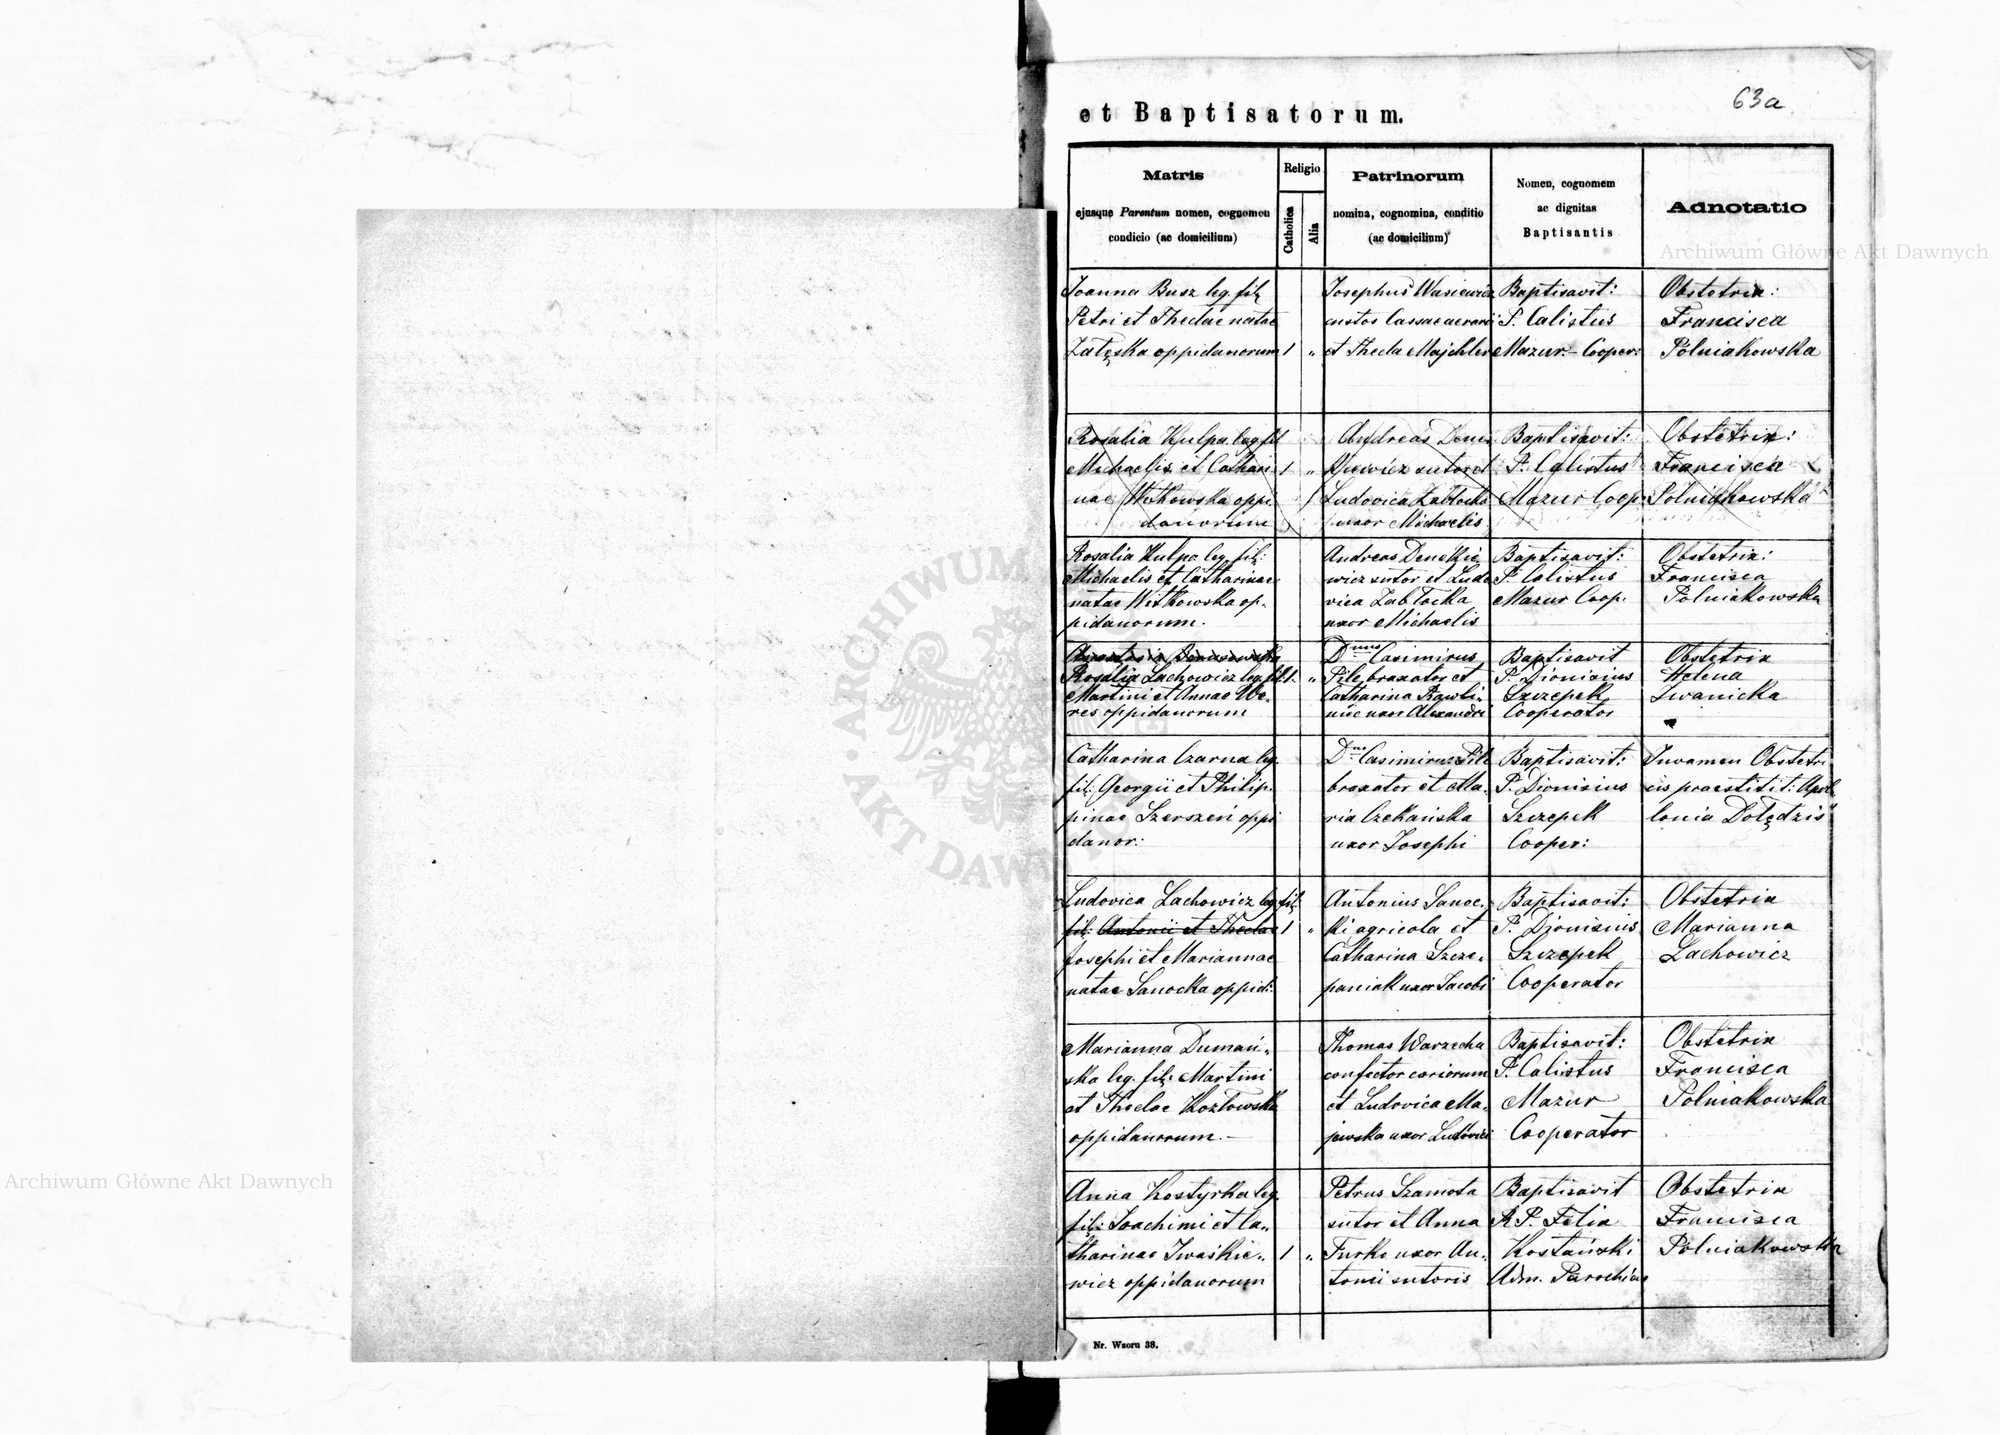 63a
et Baptisatorum.
Matris
ejusque Parentum nomen, cognomen
condicio (ac domicilium)
Religio
Catholica
Alia
Patrinorum
nomina, cognomina, conditio
(ac domicilium)
Nomen, cognomen
ac dignitas
Baptisantis
Adnotatio
Archiwum Główne Akt Dawnych
Joanna Busz leg. fil.
Petri et Theclae natae
Załęska oppidanorum
1 „
Josephus Wasiewicz
custos Cassae aerarii
et Thecla Majchler
Baptisavit:
P. Calistus
Mazur - Cooper:
Obstetrix:
Francisca
Polniakowska
Rosalia Kulpa leg. fil
Michaelis et Cathari-
nae Witkowska oppi-
danorum
1 „
Andreas Dene-
kiewicz sutor et
Ludovica Zabłocka
uxor Michaelis
Baptisavit:
P. Calistus
Mazur Coop:
Obstetrix:
Francisca
Polniakowska
Rosalia Kulpa leg. fil:
Michaelis et Catharinae
natae Witkowska op-
pidanorum.
Andreas Denekie
wicz sutor et Ludo
vica Zabłocka
uxor Michaelis
Baptisavit:
P. Calistus
Mazur Coop.
Obstetrix:
Francisca
Polniakowska
Rosalia Lachowicz leg. fil
Martini et Annae We-
res oppidanorum
1. „
Dnus Casimirus
Pile braxator et
Catharina
uxor Alexandri
Baptisavit
P. Dionisius
Szczepek
Cooperator
Obstetrix
Helena
Iwanicka
Catharina Czarna leg.
fil: Georgii et Philip-
pinae Szerszeń oppi
danor:
Dnus Casimirus Pile
braxator et Ma-
ria Czekańska
uxor Josephi
Baptisavit:
P. Dionisius
Szczepek
Cooper:
Juvamen Obstetri
cis praestitit: Apol-
lonia Dołędzis
Ludovica Lachowicz leg. fil.
fil: Antonii et Theclae
Josephi et Mariannae
natae Sanocka oppid:
1 „
Antonius Sanoc-
ki agricola et
Catharina Szcze-
paniak uxor Jacobi
Baptisavit:
P. Dionisius
Szczepek
Cooperator
Obstetrix
Marianna
Lachowicz
Marianna Dumań-
ska leg. fil: Martini
et Theclae Kozłowska
oppidanorum. -
Thomas Warzecha
confector coriorum
et Ludovica Ma-
jewska uxor Ludovici
Baptisavit:
P. Calistus
Mazur
Cooperator
Obstetrix
Francisca
Polniakowska
Anna Kostyrka leg.
fil: Joachimi et Ca-
tharinae Iwaśkie-
wicz oppidanorum
1 „
Petrus Szamota
sutor et Anna
Furko uxor An-
tonii sutoris
Baptisavit
R. P. Felix
Kostański
Adm. Parochiae
Obstetrix
Francisca
Polniakowska
Nr. Wzoru 38.
ARCHIWUM
AKT DAWNYCH
Archiwum Główne Akt Dawnych